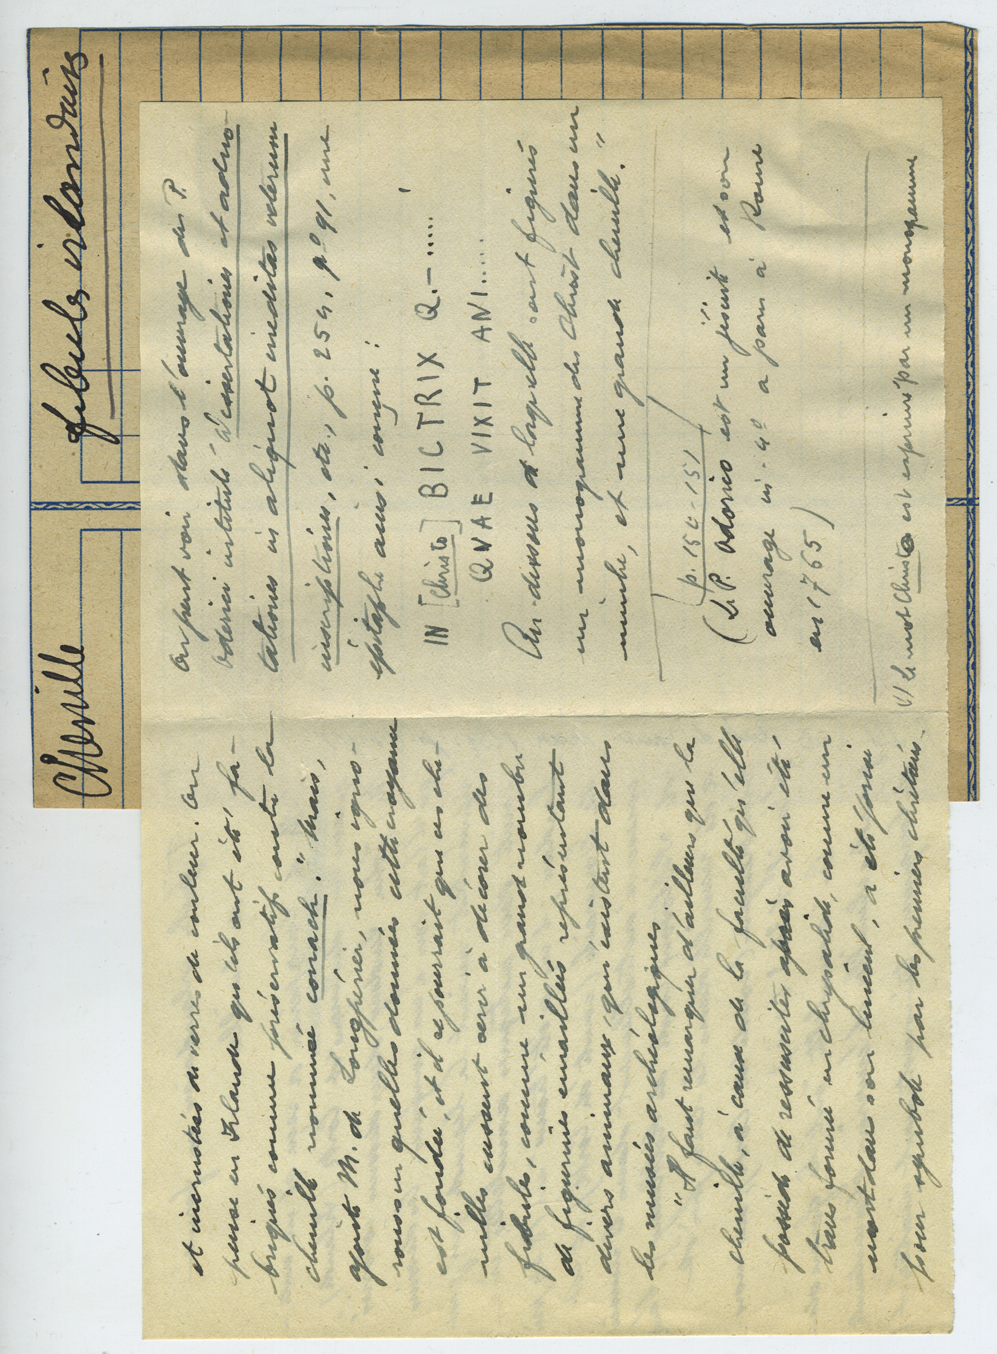 Chenille
fibules irlandaises
et incrustés de verres de couleur. On
pense en Irlande qu'ils ont été fa-
briqués comme préservatifs contre la
chenille nommée conach." Mais,
ajoute M. de Longpérier, nous igno-
rons sur quelles données cette croyance
est fondée, et il se pourrait que ces che-
nilles eussent servi à décorer des
fibules, comme un grand nombre
de figurines émaillées représentant
divers animaux, qui existent dans
les musées archéologiques
"Il faut remarquer d'ailleurs que la
chenille, à cause de la faculté qu'elle
possède de ressusciter après avoir été,
transformée en chrysalide, comme un
mort dans son linceul, a été prise
pour symbole par les premiers chrétiens.
On peut voir dans l'ouvrage du P.
Oderici intitulé Dissertationes et adno-
tationes in aliquot ineditas veterum
inscriptiones, etc., p. 254, n° 91, une
épitaphe ainsi conçue :
IN [Christo] BICTRIX Q.-.....
QVAE VIXIT ANI.....
Au-dessous de laquelle sont figurés
un monogramme du Christ dans un
nimbe, et une grande chenille."
(p. 150-151)
(Le P. Odorico est un jésuite et son
ouvrage in-4° a paru à Rome
en 1765)
(1) Le mot Christo est exprimé par un monogramme